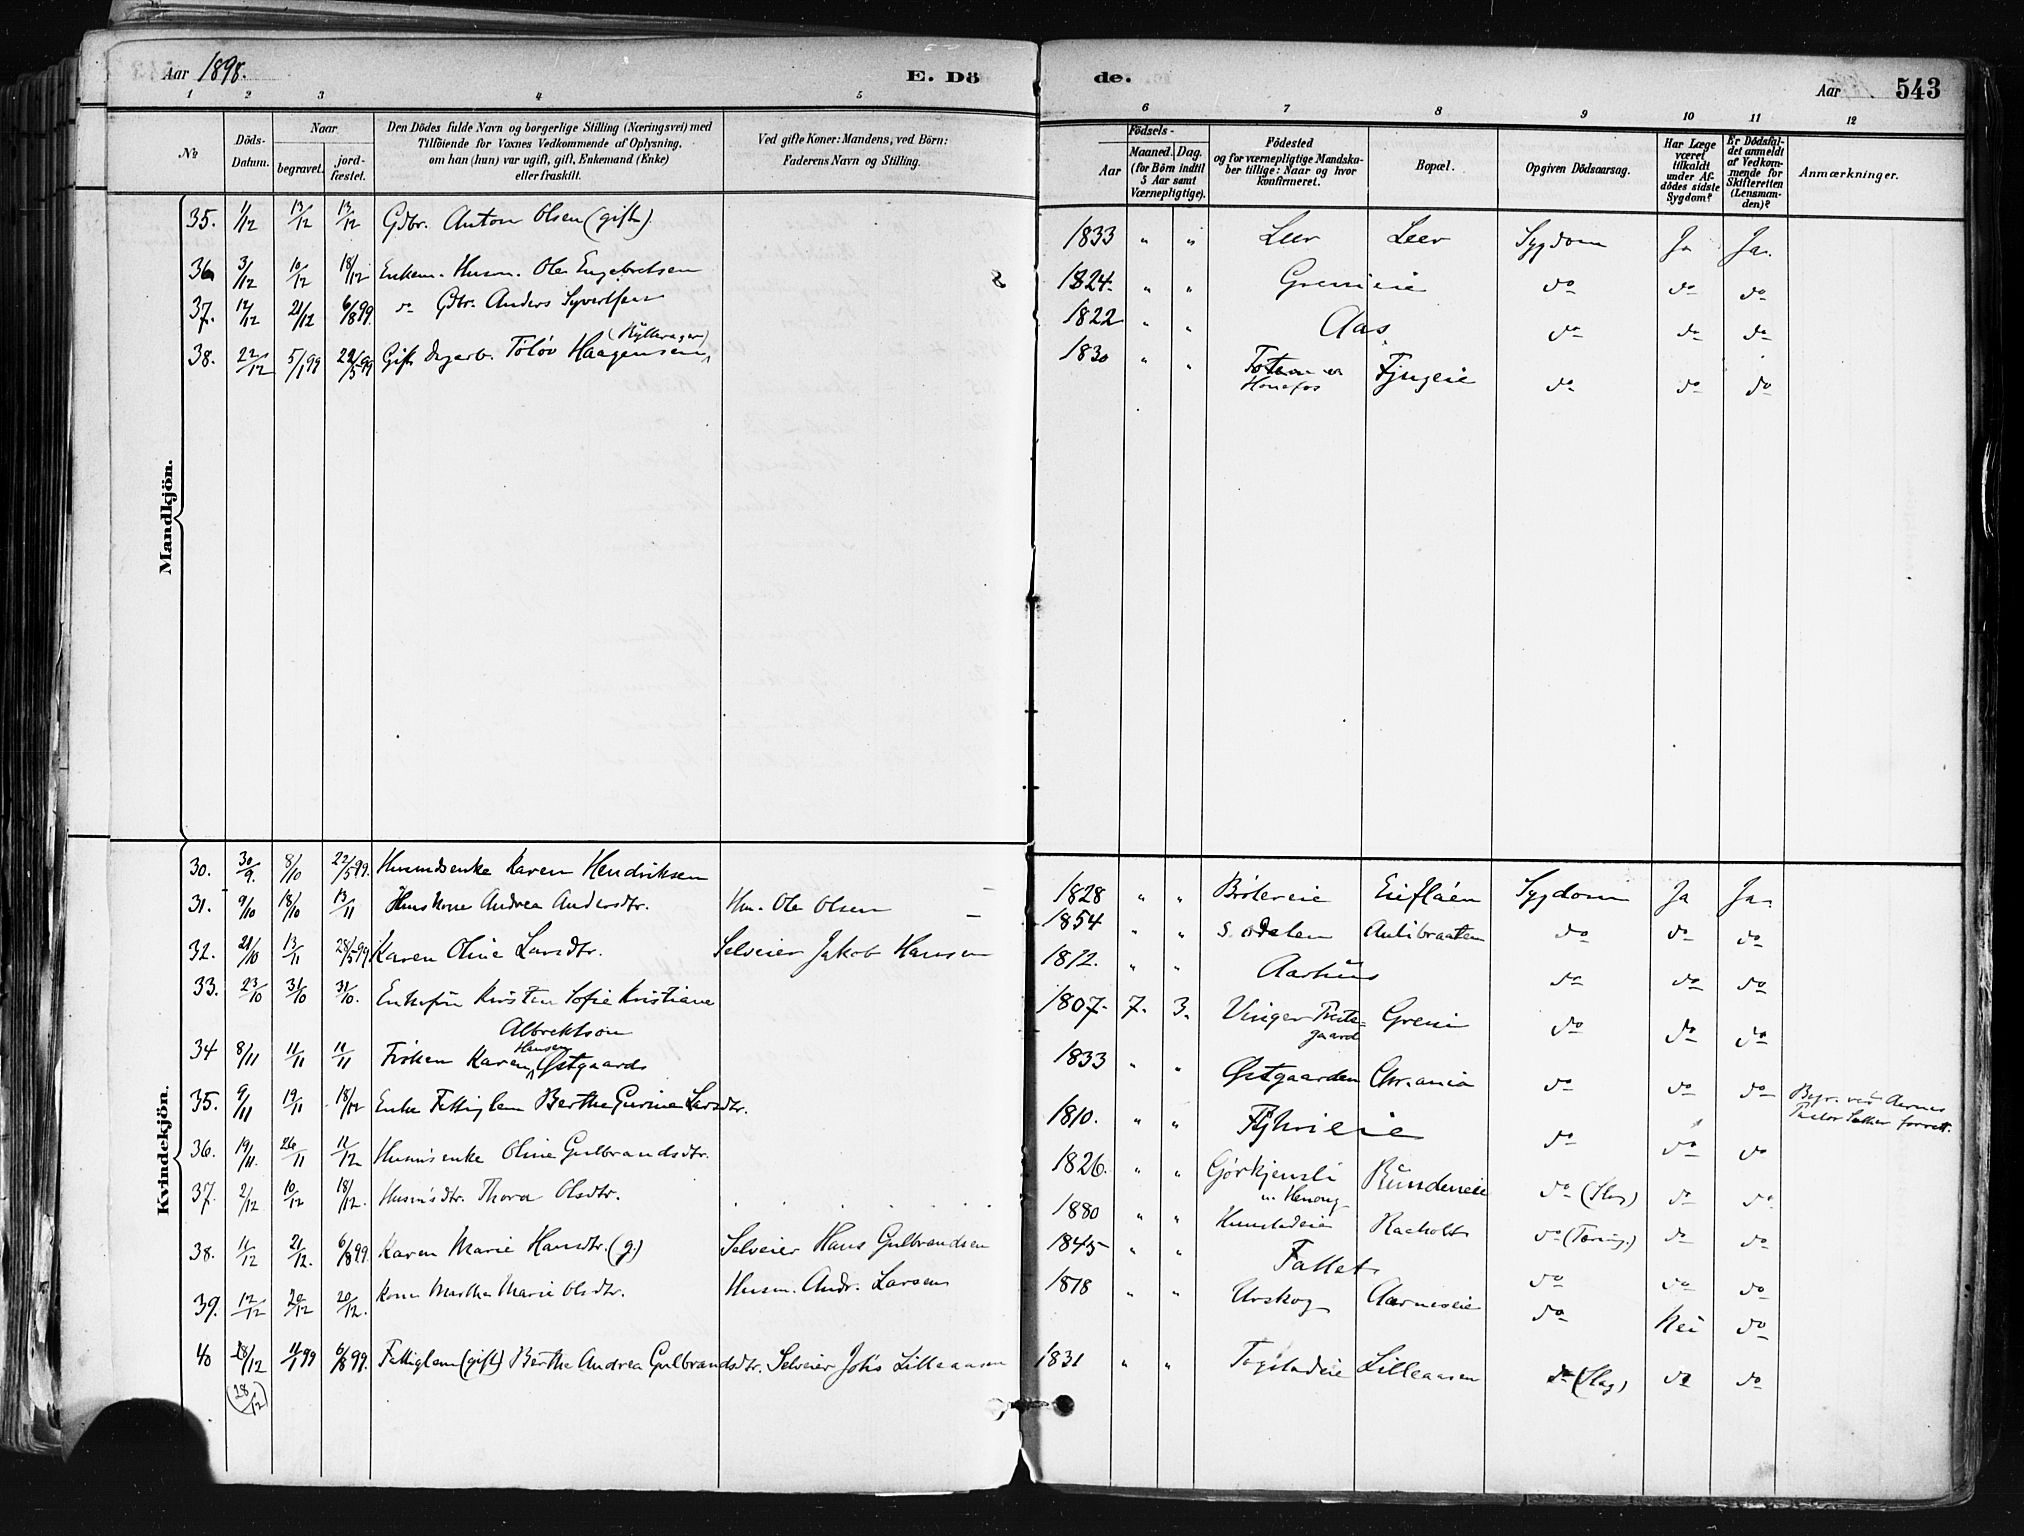 Aar 1898. E. Dö de. Aar 543
1 2 3 4 5 6 7 8 9 10 11 12
№ Döds-Datum. Naar begravet. jord-fæstet. Den Dödes fulde Navn og borgerlige Stilling (Næringsvei) med Tilföiende for Voxnes Vedkommende af Oplysning, om han (hun) var ugift, gift, Enkemand (Enke) eller fraskilt. Ved gifte Koner: Mandens, ved Börn: Faderens Navn og Stilling. Födsels- Aar Maaned. Dag. (for Börn indtil 5 Aar samt Værnepligtige). Födested og for værnepligtige Mandskaber tillige: Naar og hvor konfirmeret. Bopæl. Opgiven Dödsaarsag. Har Læge været tilkaldt under Afdödes sidste Sygdom? Er Dödsfaldet anmeldt af Vedkommende for Skifteretten (Lensmanden)? Anmærkninger.
Mandkjön.
35. 1/12 13/12 13/12 Gdbr. Anton Olsen (gift) 1833 " " Leer Leer Sygdom Ja Ja.
36 3/12 10/12 18/12 Enkem. Husm. Ole Engebretsen 1824 " " Grenieie do do do
37. 12/12 21/12 6/8 99. do Gdbr. Anders Syvertsen 1822 " " Aas do do do
38. 22/12 5/1 99 22/5 99 Gift dagarb. Tolov Haagensen 1830 " " Hønefos do do do
Kvindekjön.
30. 30/9. 8/10 22/5 99. Husmdsenke Karen Hendriksen 1828 " " Brötereie Eifloen Sygdom Ja Ja.
31. 9/10 18/10 13/11 Huskone Andrea Andersdtr. Hm. Ole Olsen 1854 " " S. Odalen Aulibraaten do do do
32. 21/10 13/11 28/5 99 Karen Oline Larsdtr. Selveier Jakob Hansen 1812. " " Aarhus do do do
33. 23/10 31/10 31/10. Enkefru Kirsten Sofie Kristiane Albrektson 1807. 7. 3. Vinger Præstegaard Greni do do do
34 8/11 11/11 11/11 Frøken Karen Hansen Østgaard 1833 " " Østgaarden Chr.ania do do do
35. 9/11 19/11 18/12 Enke Fattiglem Berthe Gurine Larsdtr. 1810. " " do do do Begr. ved Aarnes
36. 19/11. 26/11 11/12 Husm.enke Oline Gulbrandsdtr. 1826. " " Rundeneie do (Slag) do do
37. 2/12 10/12 18/12. Husm.dtr. Thora Olsdtr. 1880 " " Raaholt do (Tæring.) do do
38. 11/12 21/12. 6/8 99. Karen Marie Hansdtr. (g.) Selveier Hans Gulbrandsen 1845 " " Fallet do do do
39. 12/12 20/12 20/12. Kone Marthe Marie Olsdtr. Husm. Andr. Larsen 1818 " " Urskog Aarneseie do Nei do
40 28/12 11/1 99 6/8 99. Fattiglem (gift) Berthe Andrea Gulbrandsdtr. Selveier Johs Lilleaasen 1831 " " Lilleaasen do (Slag) do do
(28/12)